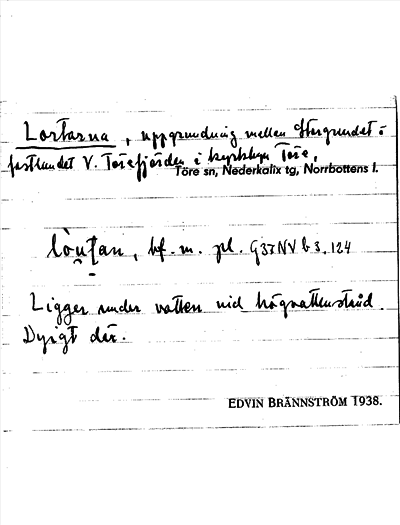 Lortarna, uppgrundning mellan Storgrundet o
fastlandet V. Törefjärden i kyrkbyn Töre,
Töre sn, Nederkalix tg, Norrbottens l.
bf. m. pl. G37NV b 3, 124
Ligger under vatten vid högvattenstånd.
Dyigt där.
EDVIN BRÄNNSTRÖM 1938.